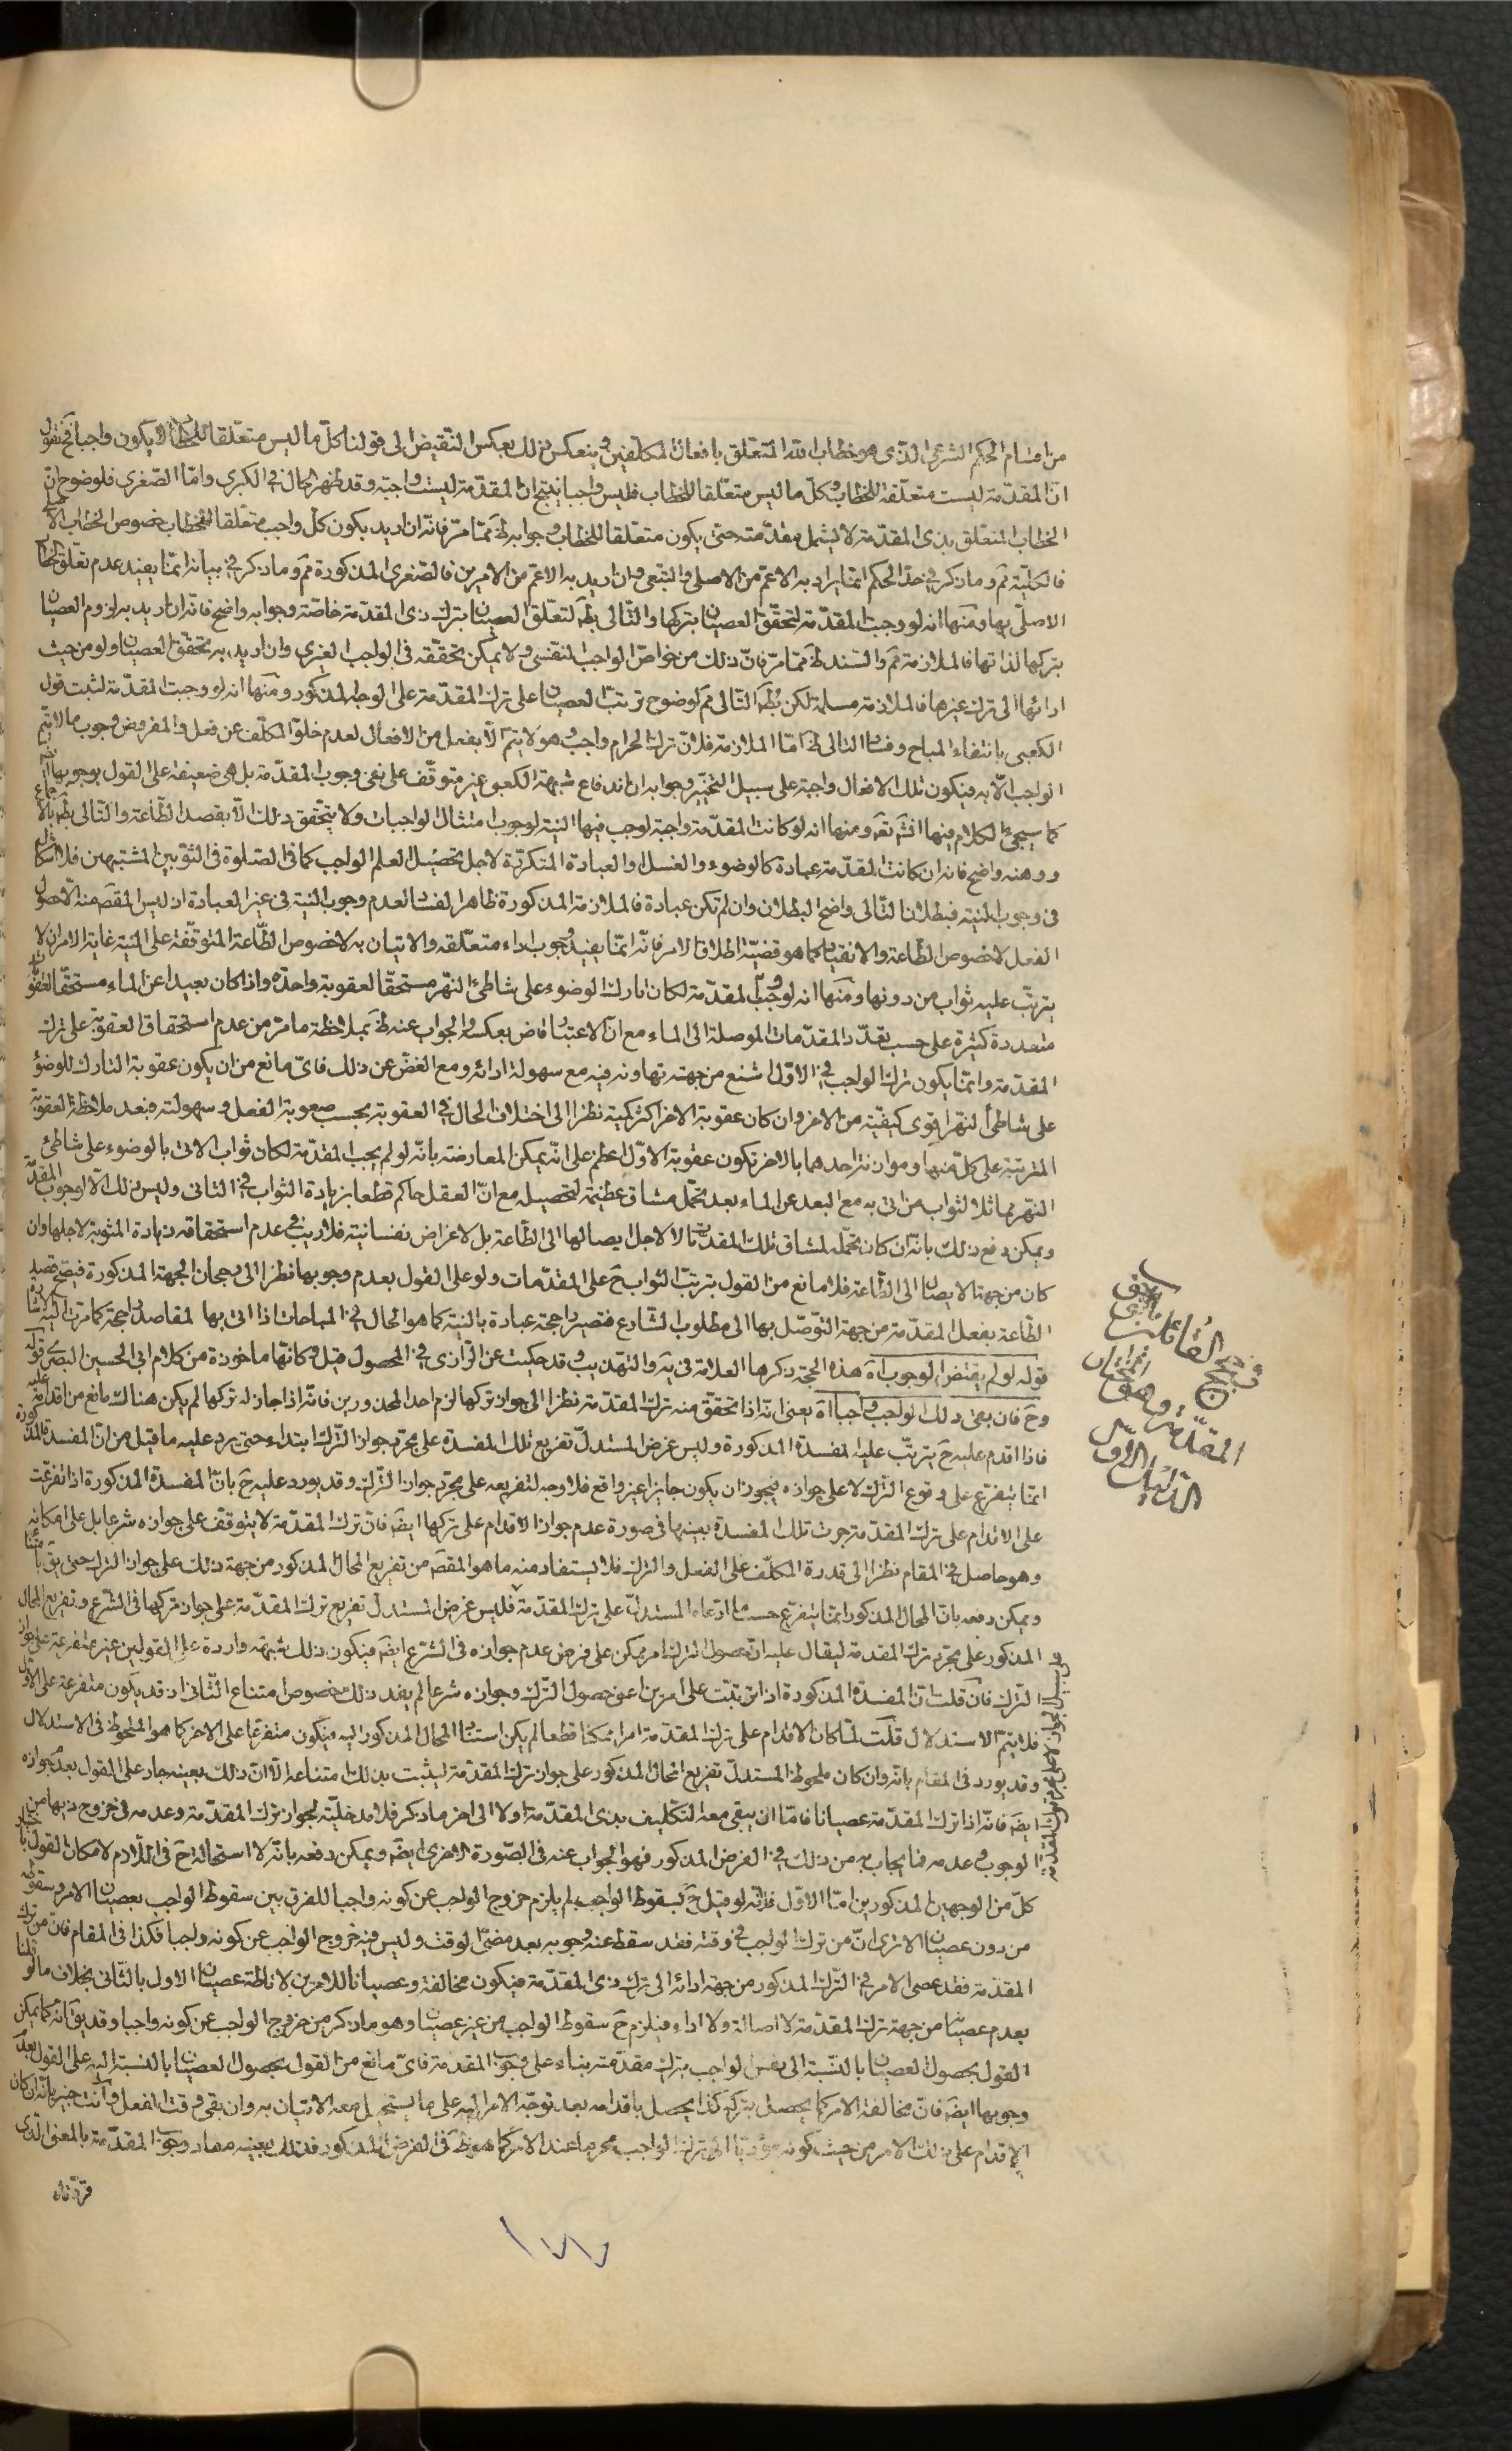 من اقسام الحكم الشرعى الذى هو خطاب الله المتعلق بافعال المكلفين و ينعكس ذلك بعكس النقيض الى قولنا كل ما ليس متعلقا للخطاب لا يكون واجبا فح نقول
ان المقدمة ليست متعلقة للخطاب و كل ما ليس متعلقا للخطاب فليس واجبا ينتج ان المقدمة ليست واجبة و قد ظهر الحال فى الكبرى و اما الصغرى فلوضوح ان
الخطاب المتعلق بذى المقدمة لا يشمل مقدمته حتى يكون متعلقا للخطاب و جوابه ظ مما مر فانه ان اريد بكون كل واجب متعلقا للخطاب خصوص الخطاب الاصلى
فالكلية مم و ما ذكر فى حد الحكم انما يراد به الاعم من الاصلى و التبعى و ان اريد به الاعم من الامرين فالصغرى المذكورة مم و ما ذكر فى بيانه انما يفيد عدم تعلق الخطاب
الاصلى بها و منها انه لو وجبت المقدمة لتحقق العصيان بتركها و التالى بط لتعلق العصيان بترك ذى المقدمة خاصة و جوابه واضح فانه ان اريد به لزوم العصيان
بتركها لذاتها فالملازمة مم و السند ظ مما مر فان ذلك من خواص الواجب النفسى و لا يمكن تحققه فى الواجب الغيرى و ان اريد به تحقق العصيان و لو من حيث
ادائها الى ترك غيرها فالملازمة مسلمة لكن بط التالى مم لوضوح ترتب العصيان على ترك المقدمة على الوجه المذكور و منها انه لو وجبت المقدمة لثبت قول
الكعبى بانتفاء المباح و فساد التالى ظ اما الملازمة فلان ترك الحرام واجب و هو لا يتم الا بفعل من الافعال لعدم خلو المكلف عن فعل و المفروض وجوب ما لا يتم
الواجب الا به فيكون تلك الافعال واجبة على سبيل التخيير و جوابه ان اندفاع شبهة الكعبى غير متوقف على نفى وجوب المقدمة بل هى ضعيفة على القول بوجوبها ايضا
كما سيجئ الكلام فيها انشاء الله تعالى و منها انه لو كانت المقدمة واجبة لوجب فيها النية لوجوب امتثال الواجبات و لا يتحقق ذلك الا بقصد الطاعة و التالى بط بالاجماع
و وهنه واضح فانه ان كانت المقدمة عبادة كالوضوء و الغسل او العبادة المتكررة لاجل تحصيل العلم بالواجب كما فى الصلوة فى الثوبين المشتبهين فلا اشكال
فى وجوب النية فبطلان التالى واضح البطلان و ان لم تكن عبادة فالملازمة المذكورة ظاهر الفساد لعدم وجوب النية فى غير العبادة اذ ليس المقص منه الا حصول
الفعل لا خصوص الطاعة و الانقياد كما هو قضية اطلاق الامر فانه انما يفيد وجوب اداء متعلقه و الاتيان به لا خصوص الطاعة المتوقفة على النية غاية الامر ان لا
يترتب عليه ثواب من دونها و منها انه لو وجبت المقدمة لكان تارك الوضوء على شاطئ النهر مستحقا لعقوبة واحدة و اذا كان بعيدا عن الماء مستحقا لعقوبات
متعددة كثيرة على حسب تعدد المقدمات الموصلة الى الماء مع ان الاعتبار قاض بعكسه و الجواب عنه ظ بملاحظة ما مر من عدم استحقاق العقوبة على ترك
المقدمة و انما يكون ترك الواجب فى الاول اشنع من جهة تهاونه فيه مع سهولة ادائه و مع الغض عن ذلك فاى مانع من ان يكون عقوبة التارك للوضوء
على شاطئ النهر اقوى كيفية من الاخر و ان كان عقوبة الاخر اكثر كمية نظرا الى اختلاف الحال فى العقوبة بحسب صعوبة الفعل و سهولته فبعد ملاحظة العقوبة
المترتبة على كل منهما و موازنة احدهما بالاخر تكون عقوبة الاول اعظم على انه يمكن المعارضة بانه لو لم يجب المقدمة لكان ثواب الاتى بالوضوء على شاطئ
النهر مماثلا لثواب من اتى به مع البعد عن الماء بعد تحمل مشاق عظيمة لتحصيله مع ان العقل حاكم قطعا بزيادة الثواب فى الثانى و ليس ذلك الا لوجوب المقدمة
و يمكن دفع ذلك بانه ان كان تحمله لمشاق تلك المقدمات لا لاجل ايصالها الى الطاعة بل لاغراض نفسانية فلا ريب فى عدم استحقاقه زيادة المثوبة لاجلها و ان
كان من جهة الايصال الى الطاعة فلا مانع من القول بترتب الثواب ح على المقدمات و لو على القول بعدم وجوبها نظرا الى رجحان الجهة المذكورة فيصح قصد
الطاعة بفعل المقدمة من جهة التوصل بها الى مطلوب الشارع فتصير راجحة عبادة بالنية كما هو الحال فى المباحات اذا اتى بها لمقاصد راجحة كما مرت الاشارة اليه
قوله لو لم يقتض الوجوب اه هذه الحجة ذكرها العلامة فى يه و التهذيب و قد حكيت عن الرازى فى المحصول قبل و كانها ماخوذة من كلام ابى الحسين البصرى قوله
و ح فان بقى ذلك الواجب واجبا اه يعنى انه اذا تحقق منه ترك المقدمة نظرا الى جواز تركها لزم احد المحذورين فانه اذا جاز له تركها لم يكن هناك مانع من اقدامه عليه
فاذا اقدم عليه ح يترتب عليه المفسدة المذكورة و ليس غرض المستدل تفريع تلك المفسدة على مجرد جواز الترك ابتداء حتى يرد عليه ما قيل من ان المفسدة المذكورة
انما يتفرع على وقوع الترك لا على جوازه فيجوز ان يكون جايزا غير واقع فلا وجه لتفريعه على مجرد جواز الترك و قد يورد عليه ح بان المفسدة المذكورة اذا تفرعت
على الاقدام على ترك المقدمة جرت تلك المفسدة بعينها فى صورة عدم جواز الاقدام على تركها ايض فان ترك المقدمة لا يتوقف على جوازه شرعا بل على امكانه
و هو حاصل فى المقام نظرا الى قدرة المكلف على الفعل و الترك فلا يستفاد منه ما هو المقص من تفريع المحال المذكور من جهة ذلك على جواز الترك حتى يق بامتناعه
و يمكن دفعه بان المحال المذكور انما يتفرع حسب ما ادعاه المستدل على ترك المقدمة فليس غرض المستدل تفريع ترك المقدمة على جواز تركها فى الشرع و تفريع المحال
المذكور على مجرد ترك المقدمة ليقال عليه ان حصول الترك امر ممكن على فرض عدم جوازه فى الشرع ايض فيكون ذلك شبهة واردة على القولين غير متفرعة على جواز
الترك فان قلت ان المفسدة المذكورة اذا ترتبت على امرين اعنى حصول الترك و جوازه شرعا لم يفد ذلك خصوص امتناع الثانى اذ قد يكون متفرعة على الاول
فلا يتم الاستدلال قلت لما كان الاقدام على ترك المقدمة امرا ممكنا قطعا لم يكن استناد المحال المذكور اليه فيكون متفرعا على الاخر كما هو الملحوظ فى الاستدلال
و قد يورد فى المقام بانه و ان كان ملحوظ المستدل تفريع المحال المذكور على جواز ترك المقدمة ليثبت بذلك امتناعه الا ان ذلك بعينه جار على القول بعدم جوازه
ايض فانه اذا ترك المقدمة عصيانا فاما ان يبقى معه التكليف بذى المقدمة او لا الى اخر ما ذكر فلا مدخلية لجواز ترك المقدمة و عدمه فى خروج ذيها من
الوجوب و عدمه فما يجاب به من ذلك فى الفرض المذكور فهو الجواب عنه فى الصورة الاخرى ايض و يمكن دفعه بانه لا استحالة ح فى اللازم لامكان القول باختيار
كل من الوجهين المذكورين اما الاول فلانه لو قيل ح بسقوط الواجب لم يلزم خروج الواجب عن كونه واجبا للفرق بين سقوط الواجب بعصيان الامر و سقوطه
من دون عصيان الا ترى ان من ترك الواجب فى وقته فقد سقط عنه وجوبه بعد مضى الوقت و ليس فيه خروج الواجب عن كونه واجبا فكذا فى المقام فان من ترك
المقدمة فقد عصى الامر فى الترك المذكور من جهة ادائه الى ترك ذى المقدمة فيكون مخالفة و عصيانا للامرين لاناطة عصيان الاول بالثانى بخلاف ما لو قلنا
بعدم عصيانه من جهة ترك المقدمة لا اصالة و لا اداء فيلزم ح سقوط الواجب من غير عصيان و هو ما ذكر من خروج الواجب عن كونه واجبا و قد يق انه كما يمكن
القول بحصول العصيان بالنسبة الى نفس الواجب بترك مقدمته بناء على وجوب المقدمة فاى مانع من القول بحصول العصيان بالنسبة اليه على القول بعدم
وجوبها ايض فان مخالفة الامر كما يحصل بتركه كذا يحصل باقدامه بعد توجه الامر اليه على ما يستحيل معه الاتيان به و ان بقى وقت الفعل و انت خبير بانه ان كان
الاقدام على ذلك الامر من حيث كونه مؤديا الى ترك الواجب محرما عند الامر كما هو ظ فى الفرض المذكور فذلك بعينه مفاد وجوب المقدمة بالمعنى الذى
قررناه
١٧٧